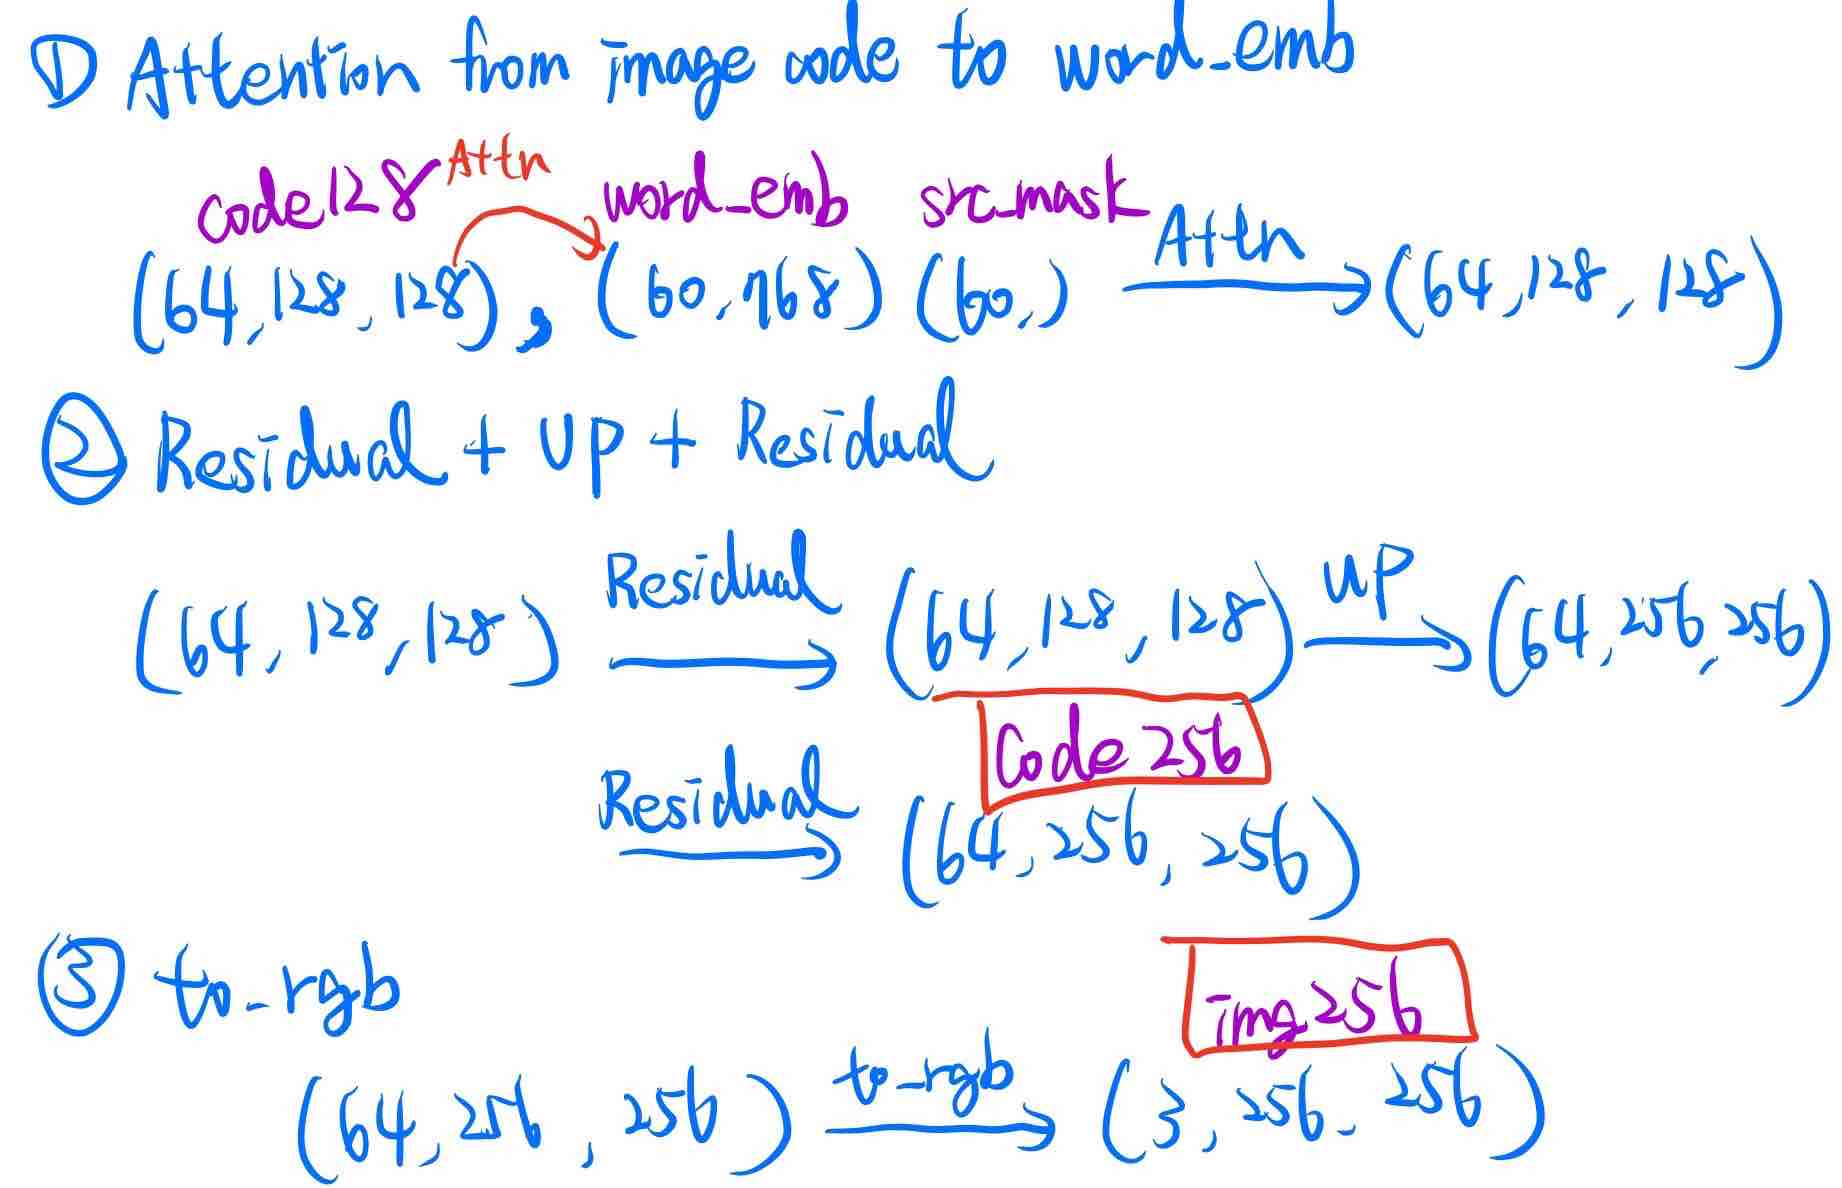 ① Attention from image code to word_emb
code128 Attn word_emb src_mask
(64,128,128), (60,768) (60,) Attn (64,128,128)
② Residual + UP + Residual
(64,128,128) Residual (64,128,128) UP (64,256,256)
Code256
Residual (64,256,256)
③ to_rgb
img256
(64,256,256) to_rgb (3,256,256)